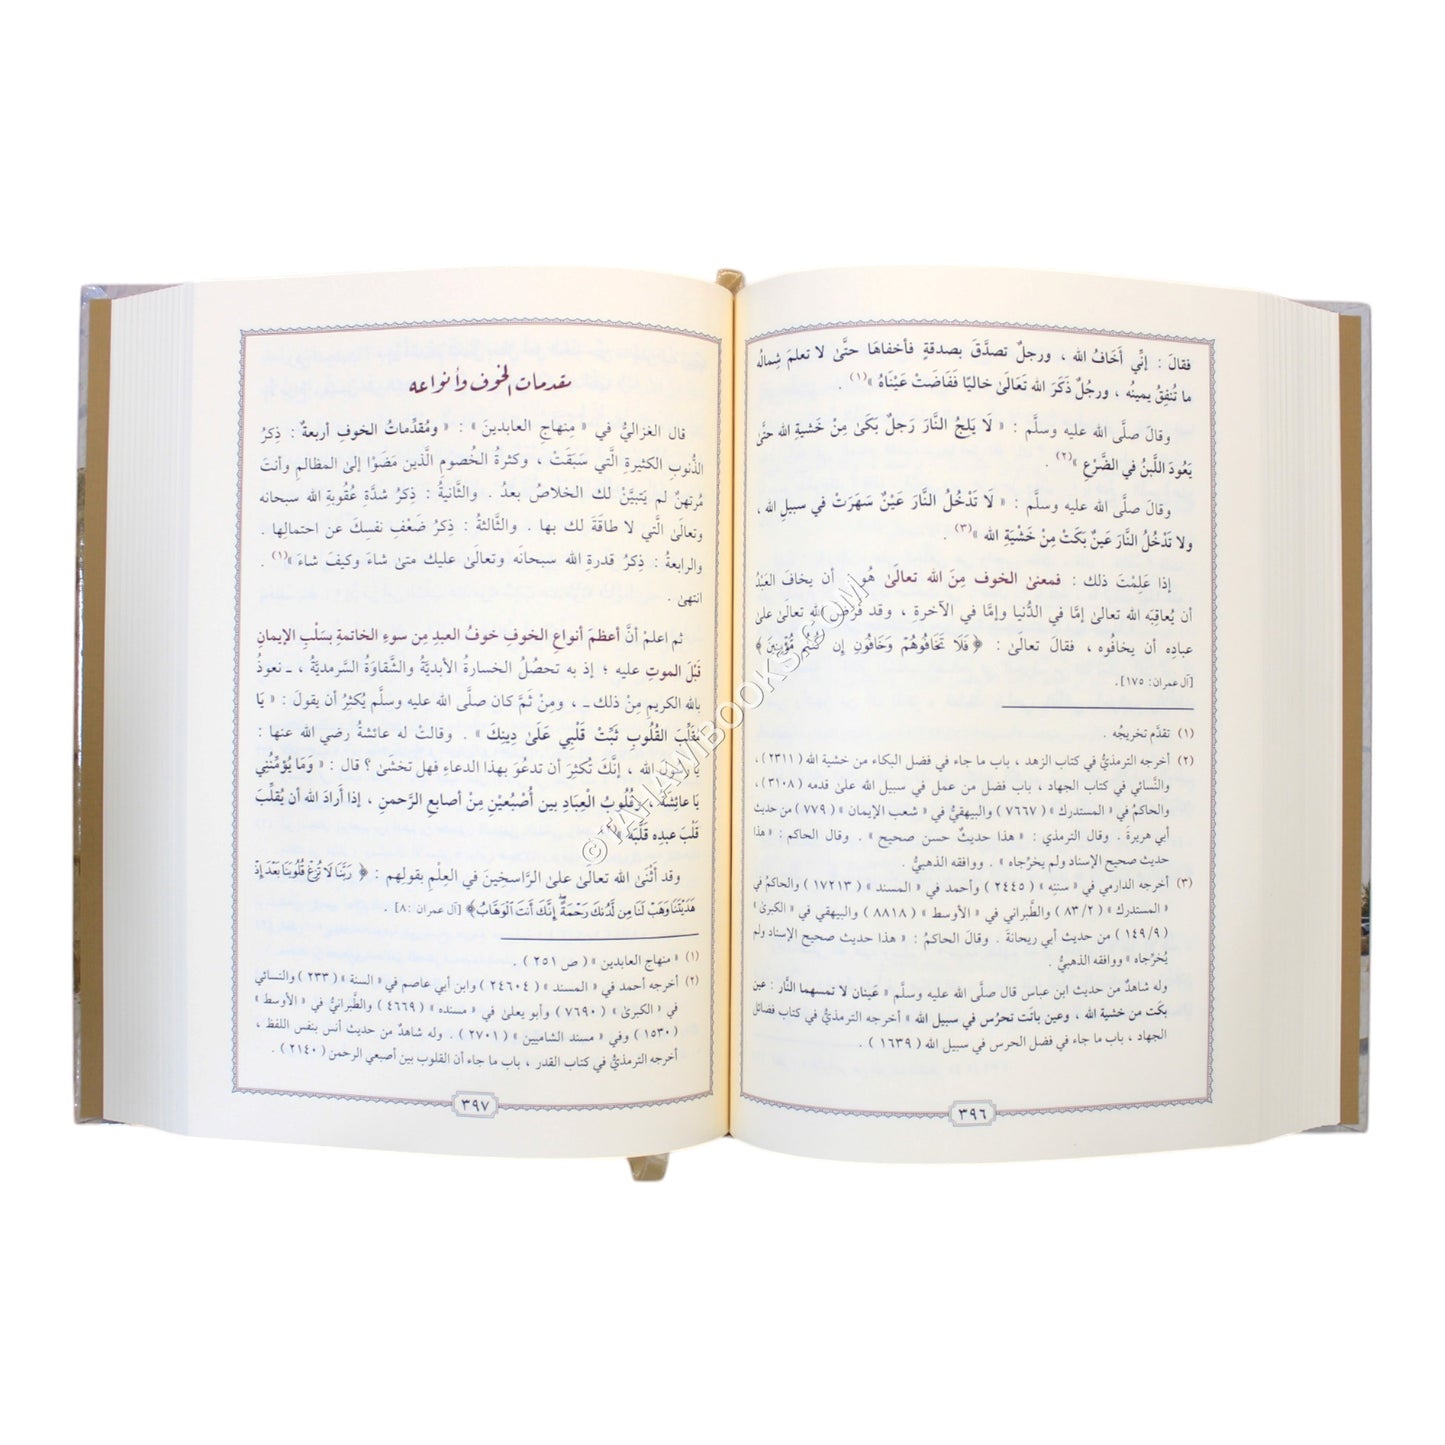 فقالَ : إنِّي أَخَافُ الله ، ورجلٌ تصدَّقَ بصدقةٍ فأخفاهَا حتَّىٰ لا تعلمَ شِمالُه
ما تُنفِقُ يمينُه ، ورجُلٌ ذَكَرَ الله تَعَالَىٰ خاليًا فَفَاضَتْ عَيْنَاهُ »(١) .
وقالَ صلَّى الله عليه وسلَّم : « لَا يَلِجُ النَّارَ رَجلٌ بَكَىٰ مِنْ خَشيةِ الله حتَّىٰ
يَعُودَ اللَّبنُ في الضَّرْعِ »(٢) .
وقالَ صلَّى الله عليه وسلَّم : « لَا تَدْخُلُ النَّارَ عَيْنٌ سَهَرَتْ في سبيلِ الله ،
ولا تَدْخُلُ النَّارَ عَينٌ بكَتْ مِنْ خَشْيَةِ الله »(٣) .
إذا عَلِمْتَ ذلك : فمعنىٰ الخوف مِنَ الله تعالَىٰ هُو : أن يخافَ العَبْدُ
أن يُعاقِبَه الله تعالىٰ إمَّا في الدُّنيا وإمَّا في الآخرةِ ، وقد فَرَضَ الله تعالَىٰ علىٰ
عبادِه أن يخافُوه ، فقالَ تعالَىٰ : ﴿ فَلَا تَخَافُوهُمْ وَخَافُونِ إِن كُنتُم مُّؤْمِنِينَ ﴾
[آل عمران: ١٧٥].
(١) تقدَّم تخريجُه .
(٢) أخرجه الترمذيُّ في كتاب الزهد ، باب ما جاء في فضل البكاء من خشية الله (٢٣١١) ،
والنَّسائي في كتاب الجهاد ، باب فضل من عمل في سبيل الله علىٰ قدمه (٣١٠٨) ،
والحاكمُ في « المستدرك » (٧٦٦٧) والبيهقيُّ في « شعب الإيمان » (٧٧٩) من حديث
أبي هريرةَ . وقال الترمذي : « هذا حديثٌ حسن صحيح » . وقال الحاكم : « هذا
حديث صحيح الإسناد ولم يخرِّجاه » . ووافقه الذهبيُّ .
(٣) أخرجه الدارمي في « سننه » (٢٤٤٥) وأحمد في « المسند » (١٧٢١٣) والحاكمُ في
« المستدرك » (٢/ ٨٣) والطَّبراني في « الأوسط » (٨٨١٨) والبيهقي في « الكبرىٰ »
(٩/ ١٤٩) من حديث أبي ريحانةَ . وقالَ الحاكمُ : « هذا حديث صحيح الإسناد ولم
يُخرِّجاه » ووافقه الذهبيُّ .
وله شاهدٌ من حديث ابن عباس قال صلَّى الله عليه وسلَّم « عَينان لا تمسهما النَّار : عين
بكت من خشية الله ، وعين باتَت تحرُس في سبيل الله » أخرجه الترمذيُّ في كتاب فضائل
الجهاد ، باب ما جاء في فضل الحرس في سبيل الله (١٦٣٩) .
٣٩٦
مقدمات الخوف وأنواعه
قال الغزاليُّ في « مِنهاجِ العابدينَ » : « ومُقدِّماتُ الخوفِ أربعةٌ : ذِكرُ
الذُّنوبِ الكثيرةِ الَّتي سَبَقَتْ ، وكثرةُ الخُصومِ الَّذين مَضَوْا إلىٰ المظالمِ وأنتَ
مُرتهنٌ لم يَتبيَّنْ لك الخلاصُ بعدُ . والثَّانيةُ : ذِكرُ شدَّةِ عُقُوبةِ الله سبحانه
وتعالَى الَّتي لا طاقَةَ لك بها . والثَّالثةُ : ذِكرُ ضَعْفِ نفسِكَ عن احتمالِها .
والرابعةُ : ذِكرُ قدرةِ الله سبحانَه وتعالَىٰ عليك متىٰ شاءَ وكيفَ شاءَ »(١) .
انتهىٰ .
ثم اعلمْ أنَّ أعظمَ أنواعِ الخوفِ خوفُ العبدِ مِن سوءِ الخاتمةِ بسَلْبِ الإيمانِ
قَبْلَ الموتِ عليه ؛ إذ به تحصُلُ الخسارةُ الأبديَّةُ والشَّقاوَةُ السَّرمديَّةُ ، ـ نعوذُ
بالله الكريمِ مِنْ ذلك ـ ، ومِنْ ثَمَّ كان صلَّى الله عليه وسلَّم يُكثِرُ أن يقولَ : « يَا
مُقَلِّبَ القُلُوبِ ثَبِّتْ قَلْبِي عَلَىٰ دِينِكَ » . وقالتْ له عائشةُ رضي الله عنها :
يا رسُولَ الله ، إنَّكَ تُكثِرُ أن تدعُوَ بهذا الدعاءِ فهل تخشَىٰ ؟ قال : « وَمَا يُؤَمِّنُنِي
يَا عائِشةُ ، وقُلُوبُ الْعِبَادِ بين أُصْبُعَيْنِ مِنْ أصابعِ الرَّحمنِ ، إذا أَرادَ الله أن يُقلِّبَ
قَلْبَ عبدِه قَلَّبَهُ »
وقد أَثْنَى الله تعالَىٰ علىٰ الرَّاسخِينَ في العِلْمِ بقولِهم : ﴿ رَبَّنَا لَا تُزِغْ قُلُوبَنَا بَعْدَ إِذْ
هَدَيْتَنَا وَهَبْ لَنَا مِن لَّدُنكَ رَحْمَةً إِنَّكَ أَنتَ الْوَهَّابُ ﴾ [آل عمران :٨] .
(١) « منهاج العابدين » (ص ٢٥١) .
(٢) أخرجه أحمد في « المسند » (٢٤٦٠٤) وابن أبي عاصم في « السنة » (٢٣٣) والنسائي
في « الكبرىٰ » (٧٦٩٠) وأبو يعلىٰ في « مسنده » (٤٦٦٩) والطَّبرانيُّ في « الأوسط »
(١٥٣٠) وفي « مسند الشاميين » (٢٧٠١) . وله شاهدٌ من حديث أنس بنفس اللفظ ،
أخرجه الترمذيُّ في كتاب القدر ، باب ما جاء أن القلوب بين أصبعي الرحمن (٢١٤٠) .
٣٩٧
©TAHAWIBOOKS.COM